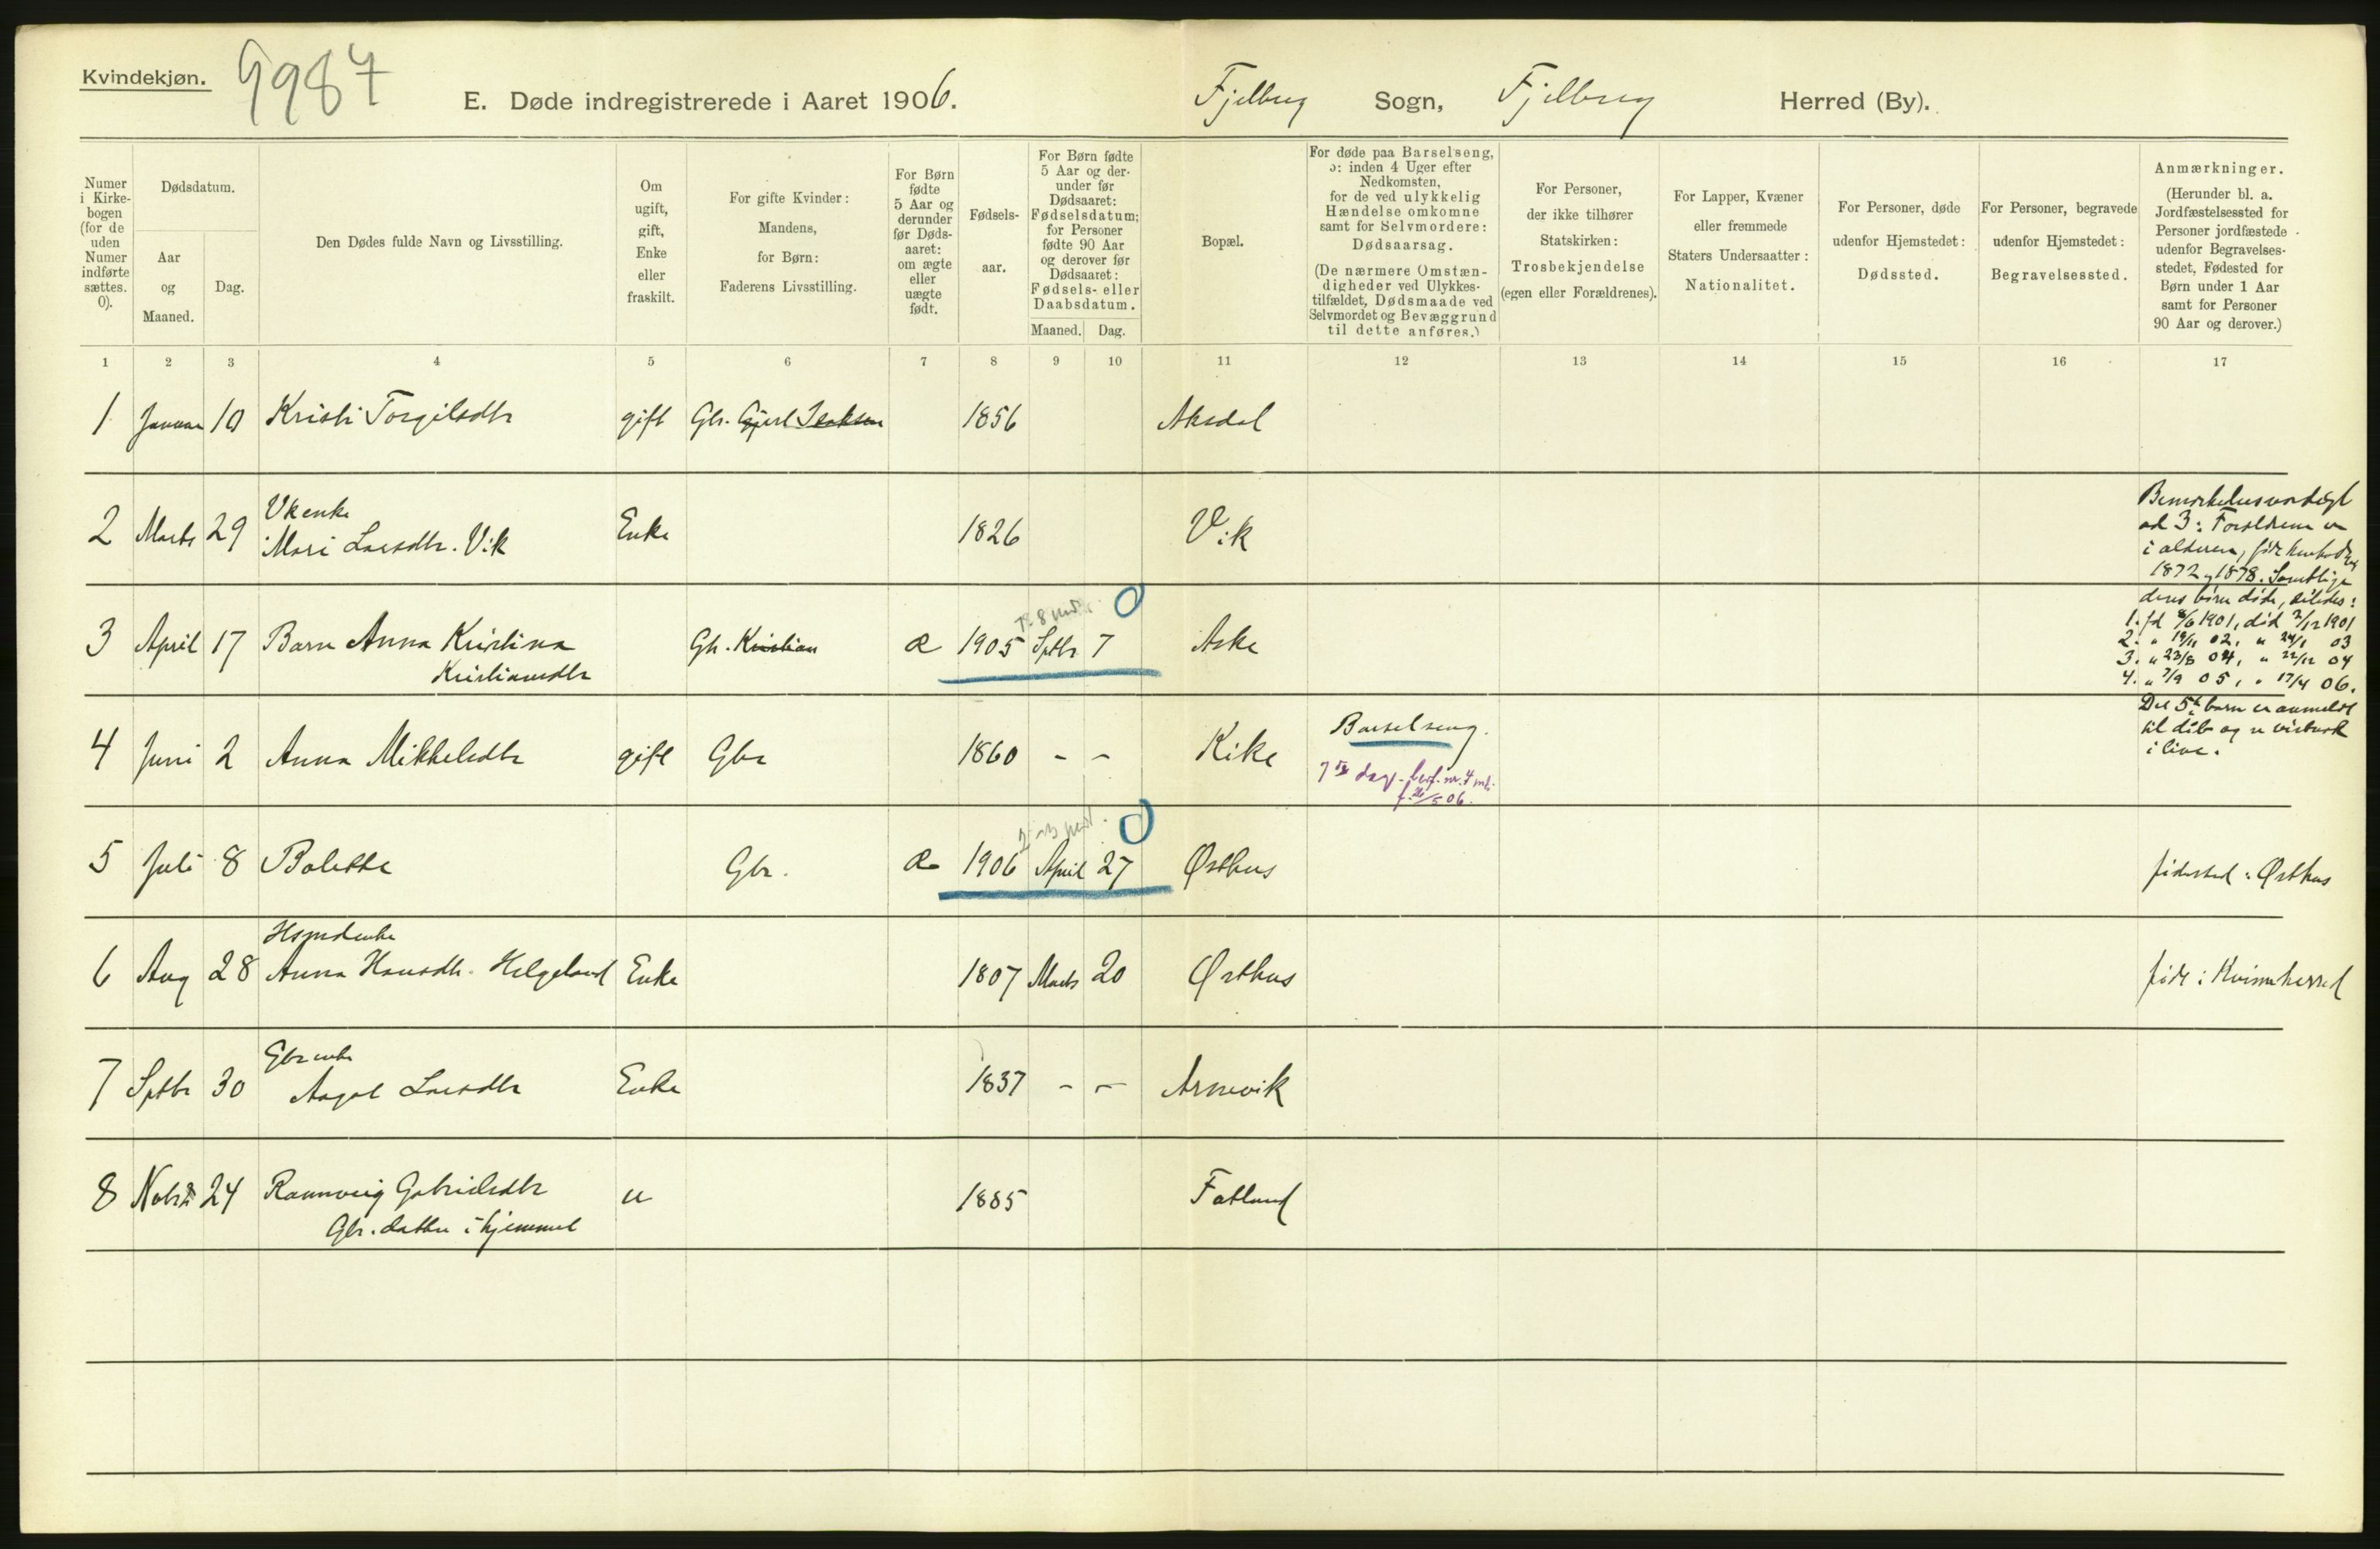 Kvindekjøn.
9987
E. Døde indregistrerede i Aaret 1906.
Fjelberg Sogn, Fjelberg Herred (By).
Numer
i Kirke-
bogen
(for de
uden
Numer
indførte
sættes.
0).
Dødsdatum.
Aar
og
Maaned.
Dag.
Den Dødes fulde Navn og Livsstilling.
Om
ugift,
gift,
Enke
eller
fraskilt.
For gifte Kvinder:
Mandens,
for Børn:
Faderens Livsstilling.
For Børn
fødte
5 Aar og
derunder
før Døds-
aaret:
om ægte
eller
uægte
født.
Fødsels-
aar.
For Børn fødte
5 Aar og der-
under før
Dødsaaret:
Fødselsdatum;
for Personer
fødte 90 Aar
og derover før
Dødsaaret:
Fødsels- eller
Daabsdatum.
Maaned. Dag.
Bopæl.
For døde paa Barselseng,
ɔ: inden 4 Uger efter
Nedkomsten,
for de ved ulykkelig
Hændelse omkomne
samt for Selvmordere:
Dødsaarsag.
(De nærmere Omstæn-
digheder ved Ulykkes-
tilfældet, Dødsmaade ved
Selvmordet og Bevæggrund
til dette anføres.)
For Personer,
der ikke tilhører
Statskirken:
Trosbekjendelse
(egen eller Forældrenes).
For Lapper, Kvæner
eller fremmede
Staters Undersaatter:
Nationalitet.
For Personer, døde
udenfor Hjemstedet:
Dødssted.
For Personer, begravede
udenfor Hjemstedet:
Begravelsessted.
Anmærkninger.
(Herunder bl. a.
Jordfæstelsessted for
Personer jordfæstede
udenfor Begravelses-
stedet, Fødested for
Børn under 1 Aar
samt for Personer
90 Aar og derover.)
1 2 3 4 5 6 7 8 9 10 11 12 13 14 15 16 17
1 Januar 10 Kristi Torgilsdtr gift Gbr. 1856 Aksdal
Vkenke
2 Marts 29 Mari Larsdtr. Vik Enke 1826 Vik
ad 3: Forældrene er
i alderen,
1872 og 1878. Samtlige
deres børn døde, således:
1. fd 8/6 1901, død 2/12 1901
2. " 19/11 02, " 24/1 03
3. " 23/8 04, " 22/12 04
4. " 7/9 05, " 17/4 06.
3 April 17 Barn Anna Kristina Gbr. Kristian æ 1905 Sptbr 7 Aske
Kristiansdtr
Det 5te barn er anmeldt
til dåb og er vistnok
i live.
4 Juni 2 Anna Mikkelsdtr gift Gbr 1860 - - Kike Barselseng.
7de dag
f. 26/5 06.
5 Juli 8 Bolette Gbr. æ 1906 April 27 Østhus fødested: Østhus
Hsmdenke
6 Aug 28 Anna Hansdtr. Helgeland Enke 1807 Marts 20 Østhus født i Kvinnherred
Gbrenke
7 Sptbr 30 Aagot Larsdtr Enke 1837 - - Arnevik
8 Novbr 24 Rannveig Gabrielsdtr u 1885 Fatland
Gbr. datter i hjemmet